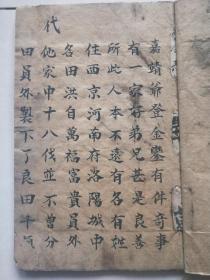 嘉靖爺登金鑾有件奇事
有一家好弟兄甚是良善
所此人本不遠有名有姓
住西京河南府洛陽城中
名田洪自萬福富貴員外
他家中十八伐並不曾分
田員外製下了良田千頃
代